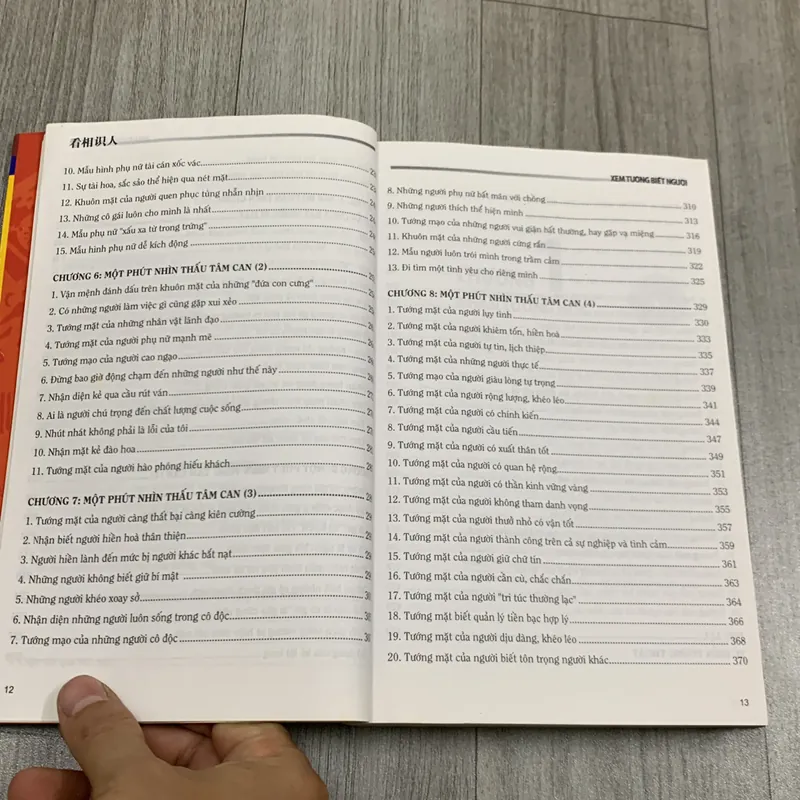 看相识人
10. Mẫu hình phụ nữ tài cán xốc vác
11. Sự tài hoa, sắc sảo thể hiện qua nét mặt
12. Khuôn mặt của người quen phục tùng nhẫn nhịn
13. Những cô gái luôn cho mình là nhất
14. Mẫu phụ nữ "xấu xa từ trong trứng"
15. Mẫu hình phụ nữ dễ kích động
CHƯƠNG 6: MỘT PHÚT NHÌN THẤU TÂM CAN (2)
1. Vận mệnh đánh dấu trên khuôn mặt của những "đứa con cưng"
2. Có những người làm việc gì cũng gặp xui xẻo
3. Tướng mặt của những nhân vật lãnh đạo
4. Tướng mặt của người phụ nữ mạnh mẽ
5. Tướng mạo của người cao ngạo
6. Đừng bao giờ động chạm đến những người như thế này
7. Nhận diện kẻ qua cầu rút ván
8. Ai là người chú trọng đến chất lượng cuộc sống
9. Nhút nhát không phải là lỗi của tôi
10. Nhận mặt kẻ đào hoa
11. Tướng mặt của người hào phóng hiếu khách
CHƯƠNG 7: MỘT PHÚT NHÌN THẤU TÂM CAN (3)
1. Tướng mặt của người càng thất bại càng kiên cường
2. Nhận biết người hiền hoà thân thiện
3. Người hiền lành đến mức bị người khác bắt nạt
4. Những người không biết giữ bí mật
5. Những người khéo xoay sở
6. Nhận diện những người luôn sống trong cô độc
7. Tướng mạo của những người cô độc
12
XEM TƯỚNG BIẾT NGƯỜI
8. Những người phụ nữ bất mãn với chồng 310
9. Những người thích thể hiện mình 313
10. Tướng mạo của những người vui giận bất thường, hay gặp vạ miệng 316
11. Khuôn mặt của những người cứng rắn 319
12. Mẫu người luôn trôi mình trong trầm cảm 322
13. Đi tìm một tình yêu cho riêng mình 325
CHƯƠNG 8: MỘT PHÚT NHÌN THẤU TÂM CAN (4) 329
1. Tướng mặt của người lụy tình 330
2. Tướng mặt của người khiêm tốn, hiền hoà 333
3. Tướng mặt của người tự tin, lịch thiệp 335
4. Tướng mặt của những người thực tế 337
5. Tướng mạo của người giàu lòng tự trọng 339
6. Tướng mặt của người rộng lượng, khéo léo 341
7. Tướng mặt của người có chính kiến 344
8. Tướng mặt của người cầu tiến 347
9. Tướng mặt của người có xuất thân tốt 349
10. Tướng mặt của người có quan hệ rộng 351
11. Tướng mặt của người có thần kinh vững vàng 353
12. Tướng mặt của người không tham danh vọng 355
13. Tướng mặt của người thuở nhỏ có vận tốt 357
14. Tướng mặt của người thành công trên cả sự nghiệp và tình cảm 359
15. Tướng mặt của người giữ chữ tín 361
16. Tướng mặt của người cần cù, chắc chắn 363
17. Tướng mặt của người "tri túc thường lạc" 364
18. Tướng mặt biết quản lý tiền bạc hợp lý 366
19. Tướng mặt của người dịu dàng, khéo léo 368
20. Tướng mặt của người biết tôn trọng người khác 370
13